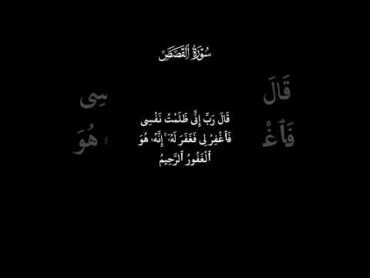 سُورَةُ القَصَصِ
قَالَ رَبِّ إِنِّي ظَلَمْتُ نَفْسِي
فَٱغْفِرْ لِي فَغَفَرَ لَهُۥٓ ۚ إِنَّهُۥ هُوَ
ٱلْغَفُورُ ٱلرَّحِيمُ
قَالَ
سِي
فَٱغْ
هُوَ